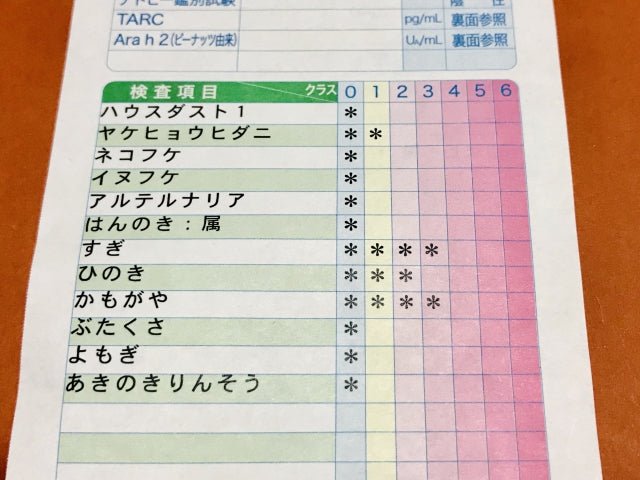 TARC pg/mL 裏面参照
Ara h 2(ピーナッツ由来) UA/mL 裏面参照
検査項目 クラス 0 1 2 3 4 5 6
ハウスダスト1 *
ヤケヒョウヒダニ * *
ネコフケ *
イヌフケ *
アルテルナリア *
はんのき：属 *
すぎ * * * *
ひのき * * *
かもがや * * * *
ぶたくさ *
よもぎ *
あきのきりんそう *